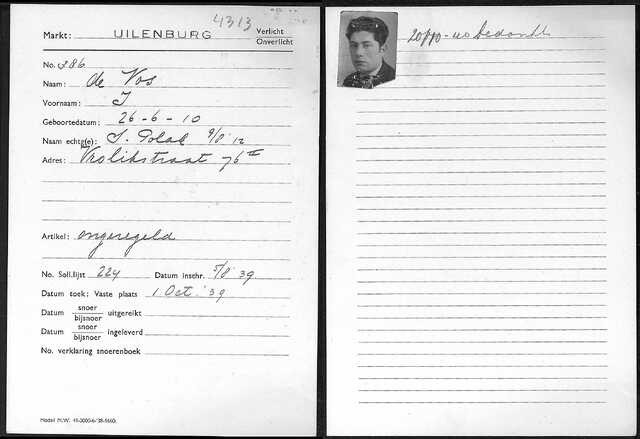 4313
Markt: UILENBURG Verlicht
Onverlicht
No. 286
Naam: de Vos
Voornaam: J
Geboortedatum: 26-6-10
Naam echtg(e): S. Polak 9/8 '12
Adres: Vrolikstraat 76 II
Artikel: ongeregeld
No. Soll.lijst 224 Datum inschr. 5/8 '39
Datum toek: Vaste plaats 1 Oct. '39
Datum snoer
bijsnoer uitgereikt
Datum snoer
bijsnoer ingeleverd
No. verklaring snoerenboek
Model M.W.
bedankt